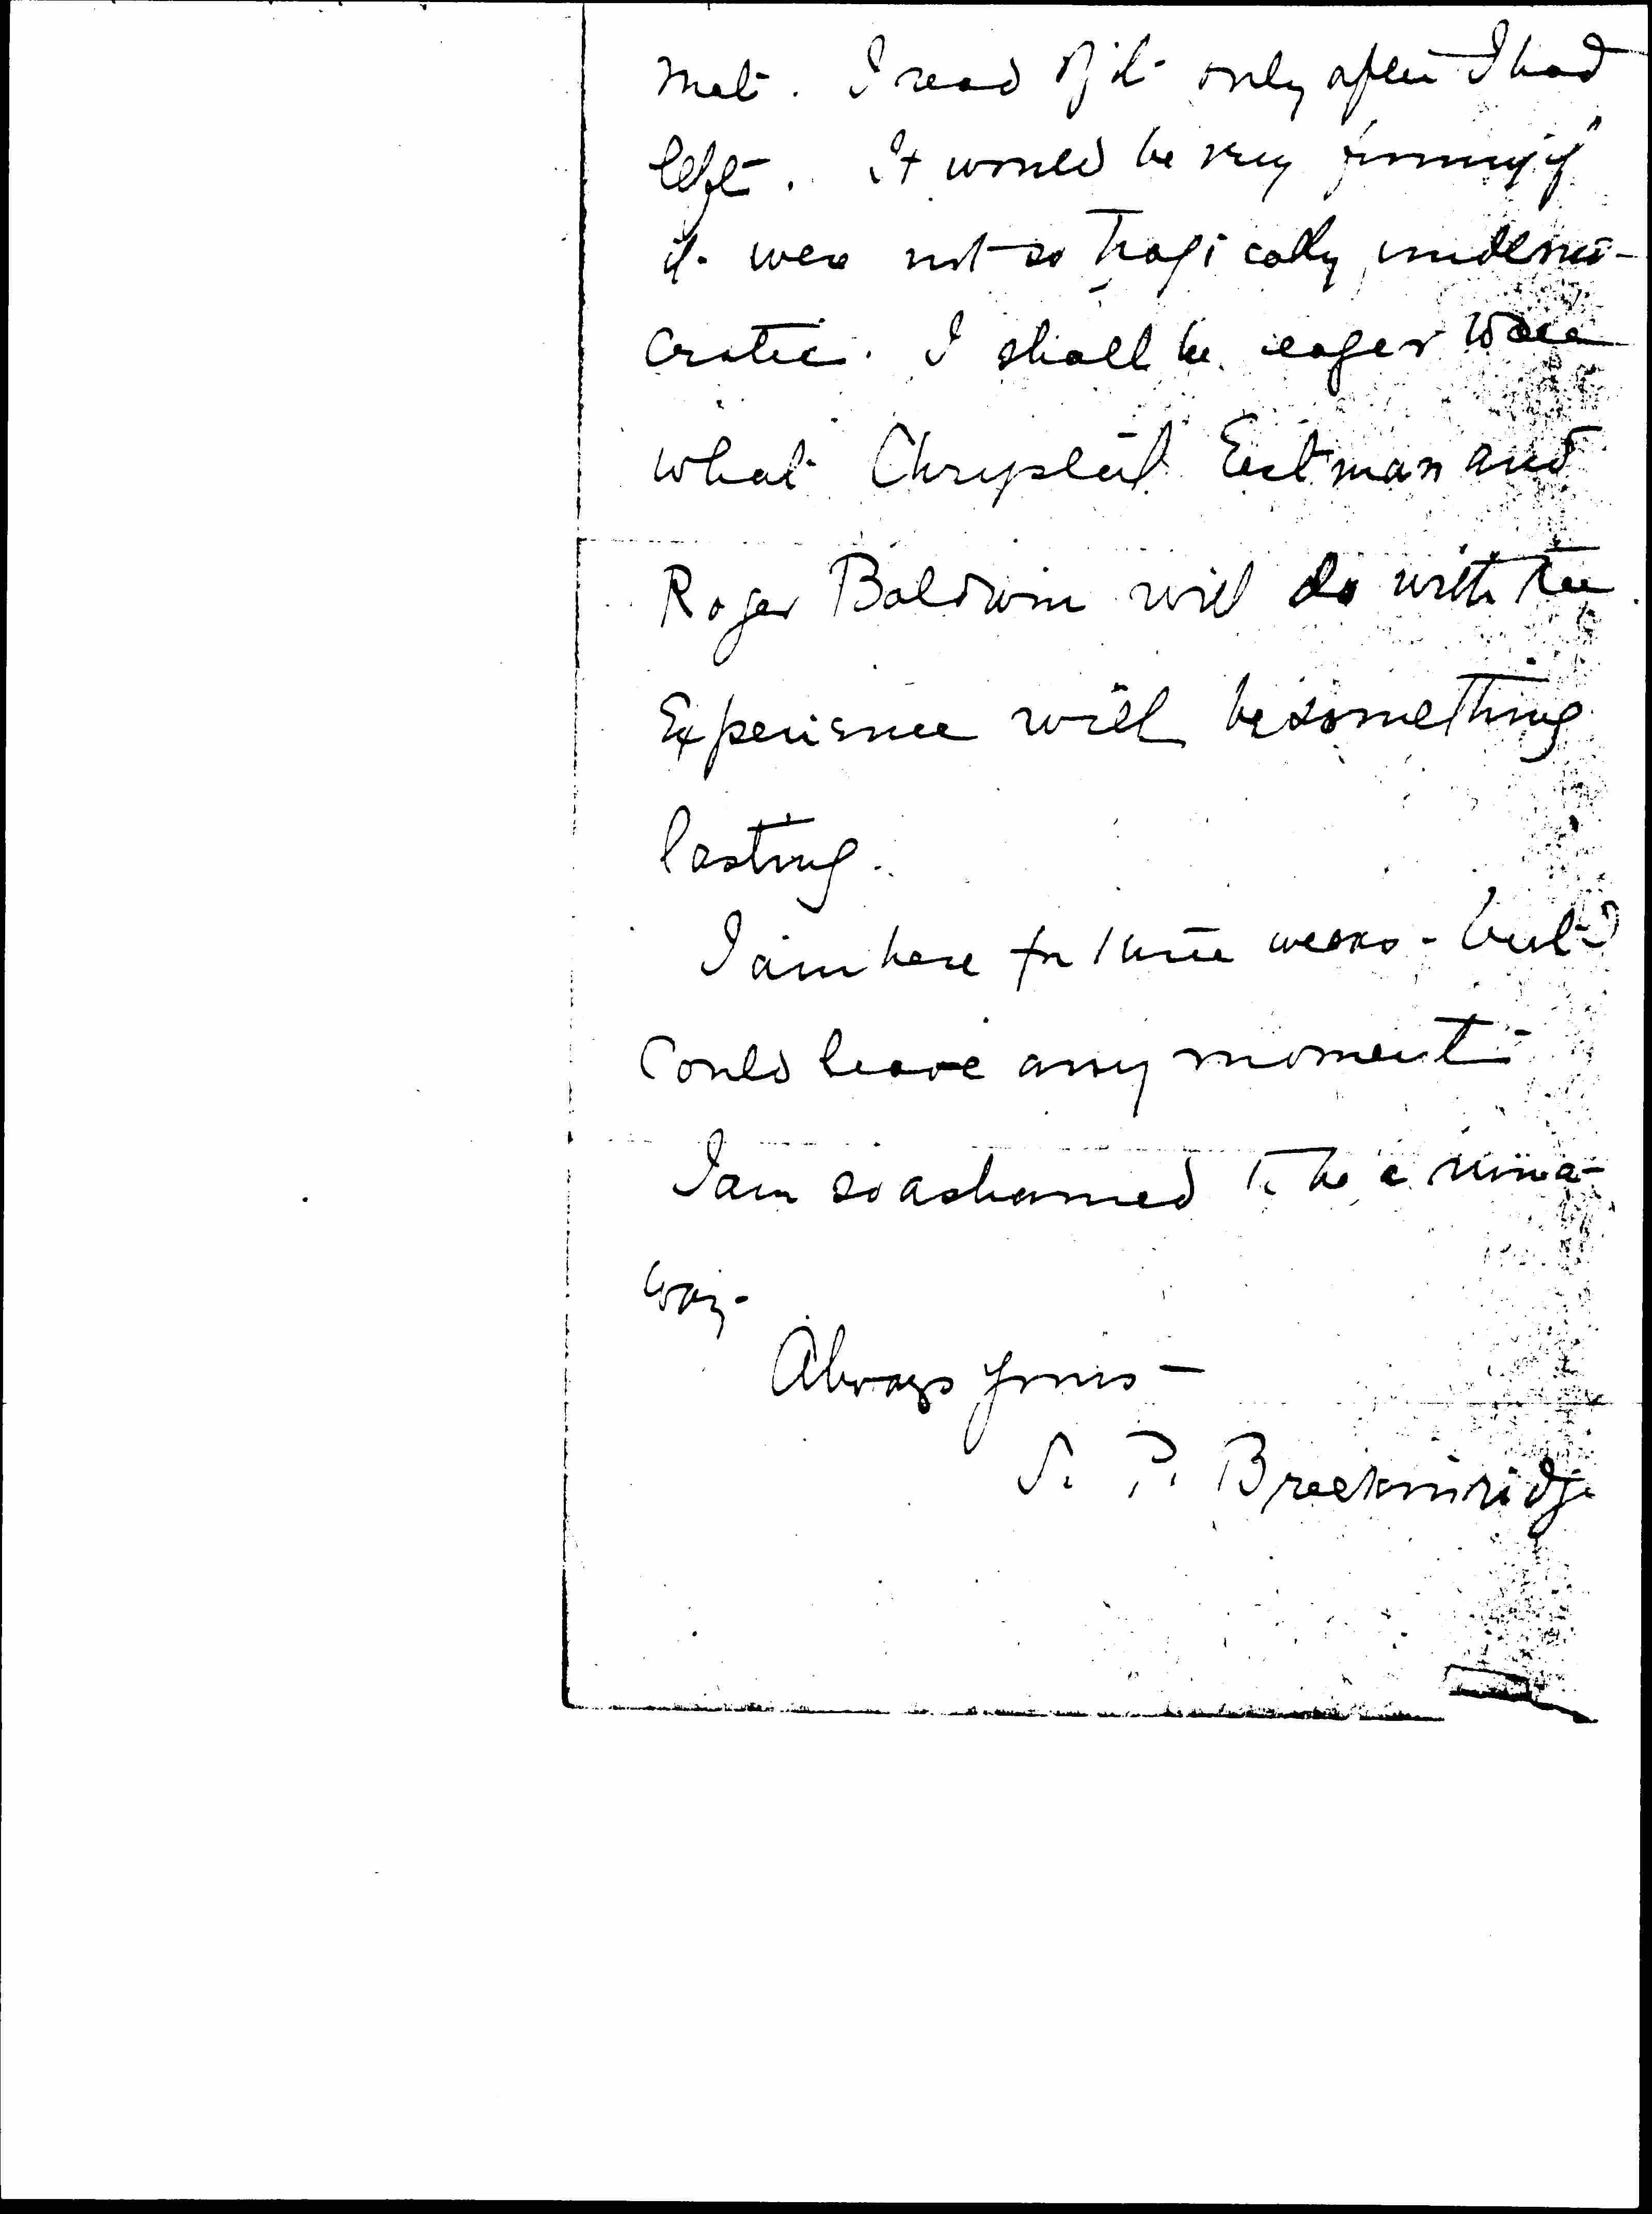 met. I read of it only after I had
left. It would be very funny if
it were not so tragically undemo-
cratic. I shall be eager to see
what Chrystal Eastman and
Roger Baldwin will do with the
Experience will be something
lasting.
I am here for three weeks - but I
could leave any moment
I am so ashamed to be a runa-
way.
Always yours -
S. P. Breckinridge